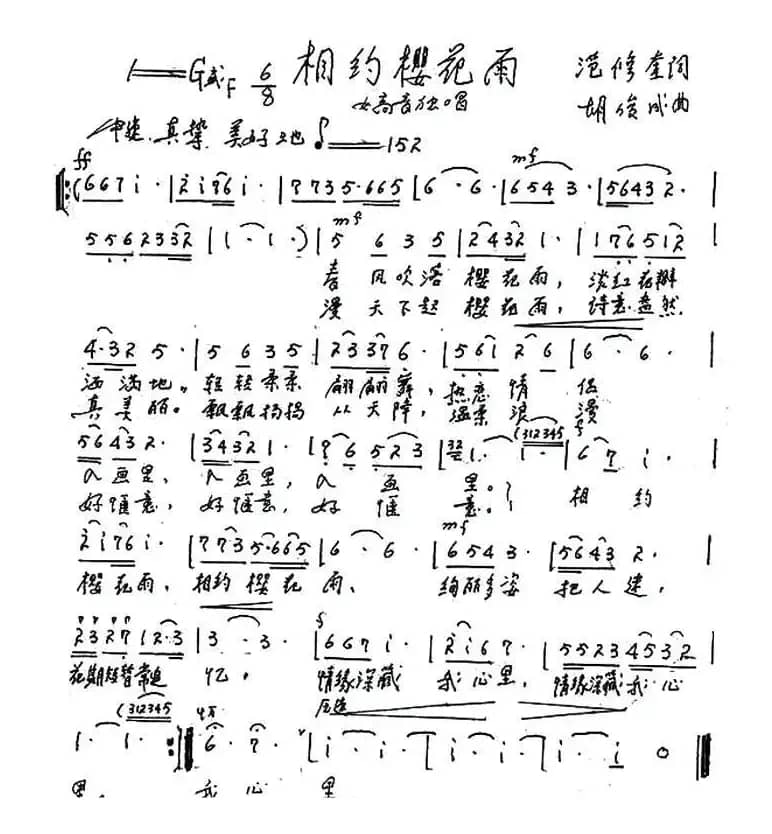 1=G或F 6/8 相约樱花雨 范修奎词
女高音独唱 胡俊成曲
中速 真挚 美好地 ♪=152
ff mf
(667i· | 2i76i· | 7735·665 | 6·6· | 6543· | 56432· |
mf
556 2332 | 1·1·) | 5 6 3 5 | 24321· | 176512 |
春 风吹落 樱花雨, 淡红花瓣
漫 天下起 樱花雨, 诗意盎然
4·325· | 5 6 3 5 | 23376· | 56i26 | 6·6· |
洒满地。轻轻柔柔 翩翩舞, 热恋情侣
真美丽。飘飘扬扬 从天降, 温柔浪漫
(312345 f
56432· | 34321· | 6 523 | 1· 1· | 67i· |
入画里, 入画里, 入画 里。 相约
好惬意, 好惬意, 好惬 意。
mf
2i76i· | 7735·665 | 6·6· | 6543· | 56432· |
樱花雨, 相约樱花雨, 绚丽多姿 把人迷,
f
2327 12·3 | 3·3· | 667i· | 2i67· | 5523 4532 |
花期短暂常 忆。 情缘深藏 我心里, 情缘深藏我心
(312345
1· 1· :‖ 6·7· | i· i· | i· i· | i· i· | i· i 0 ‖
里。 我心 里